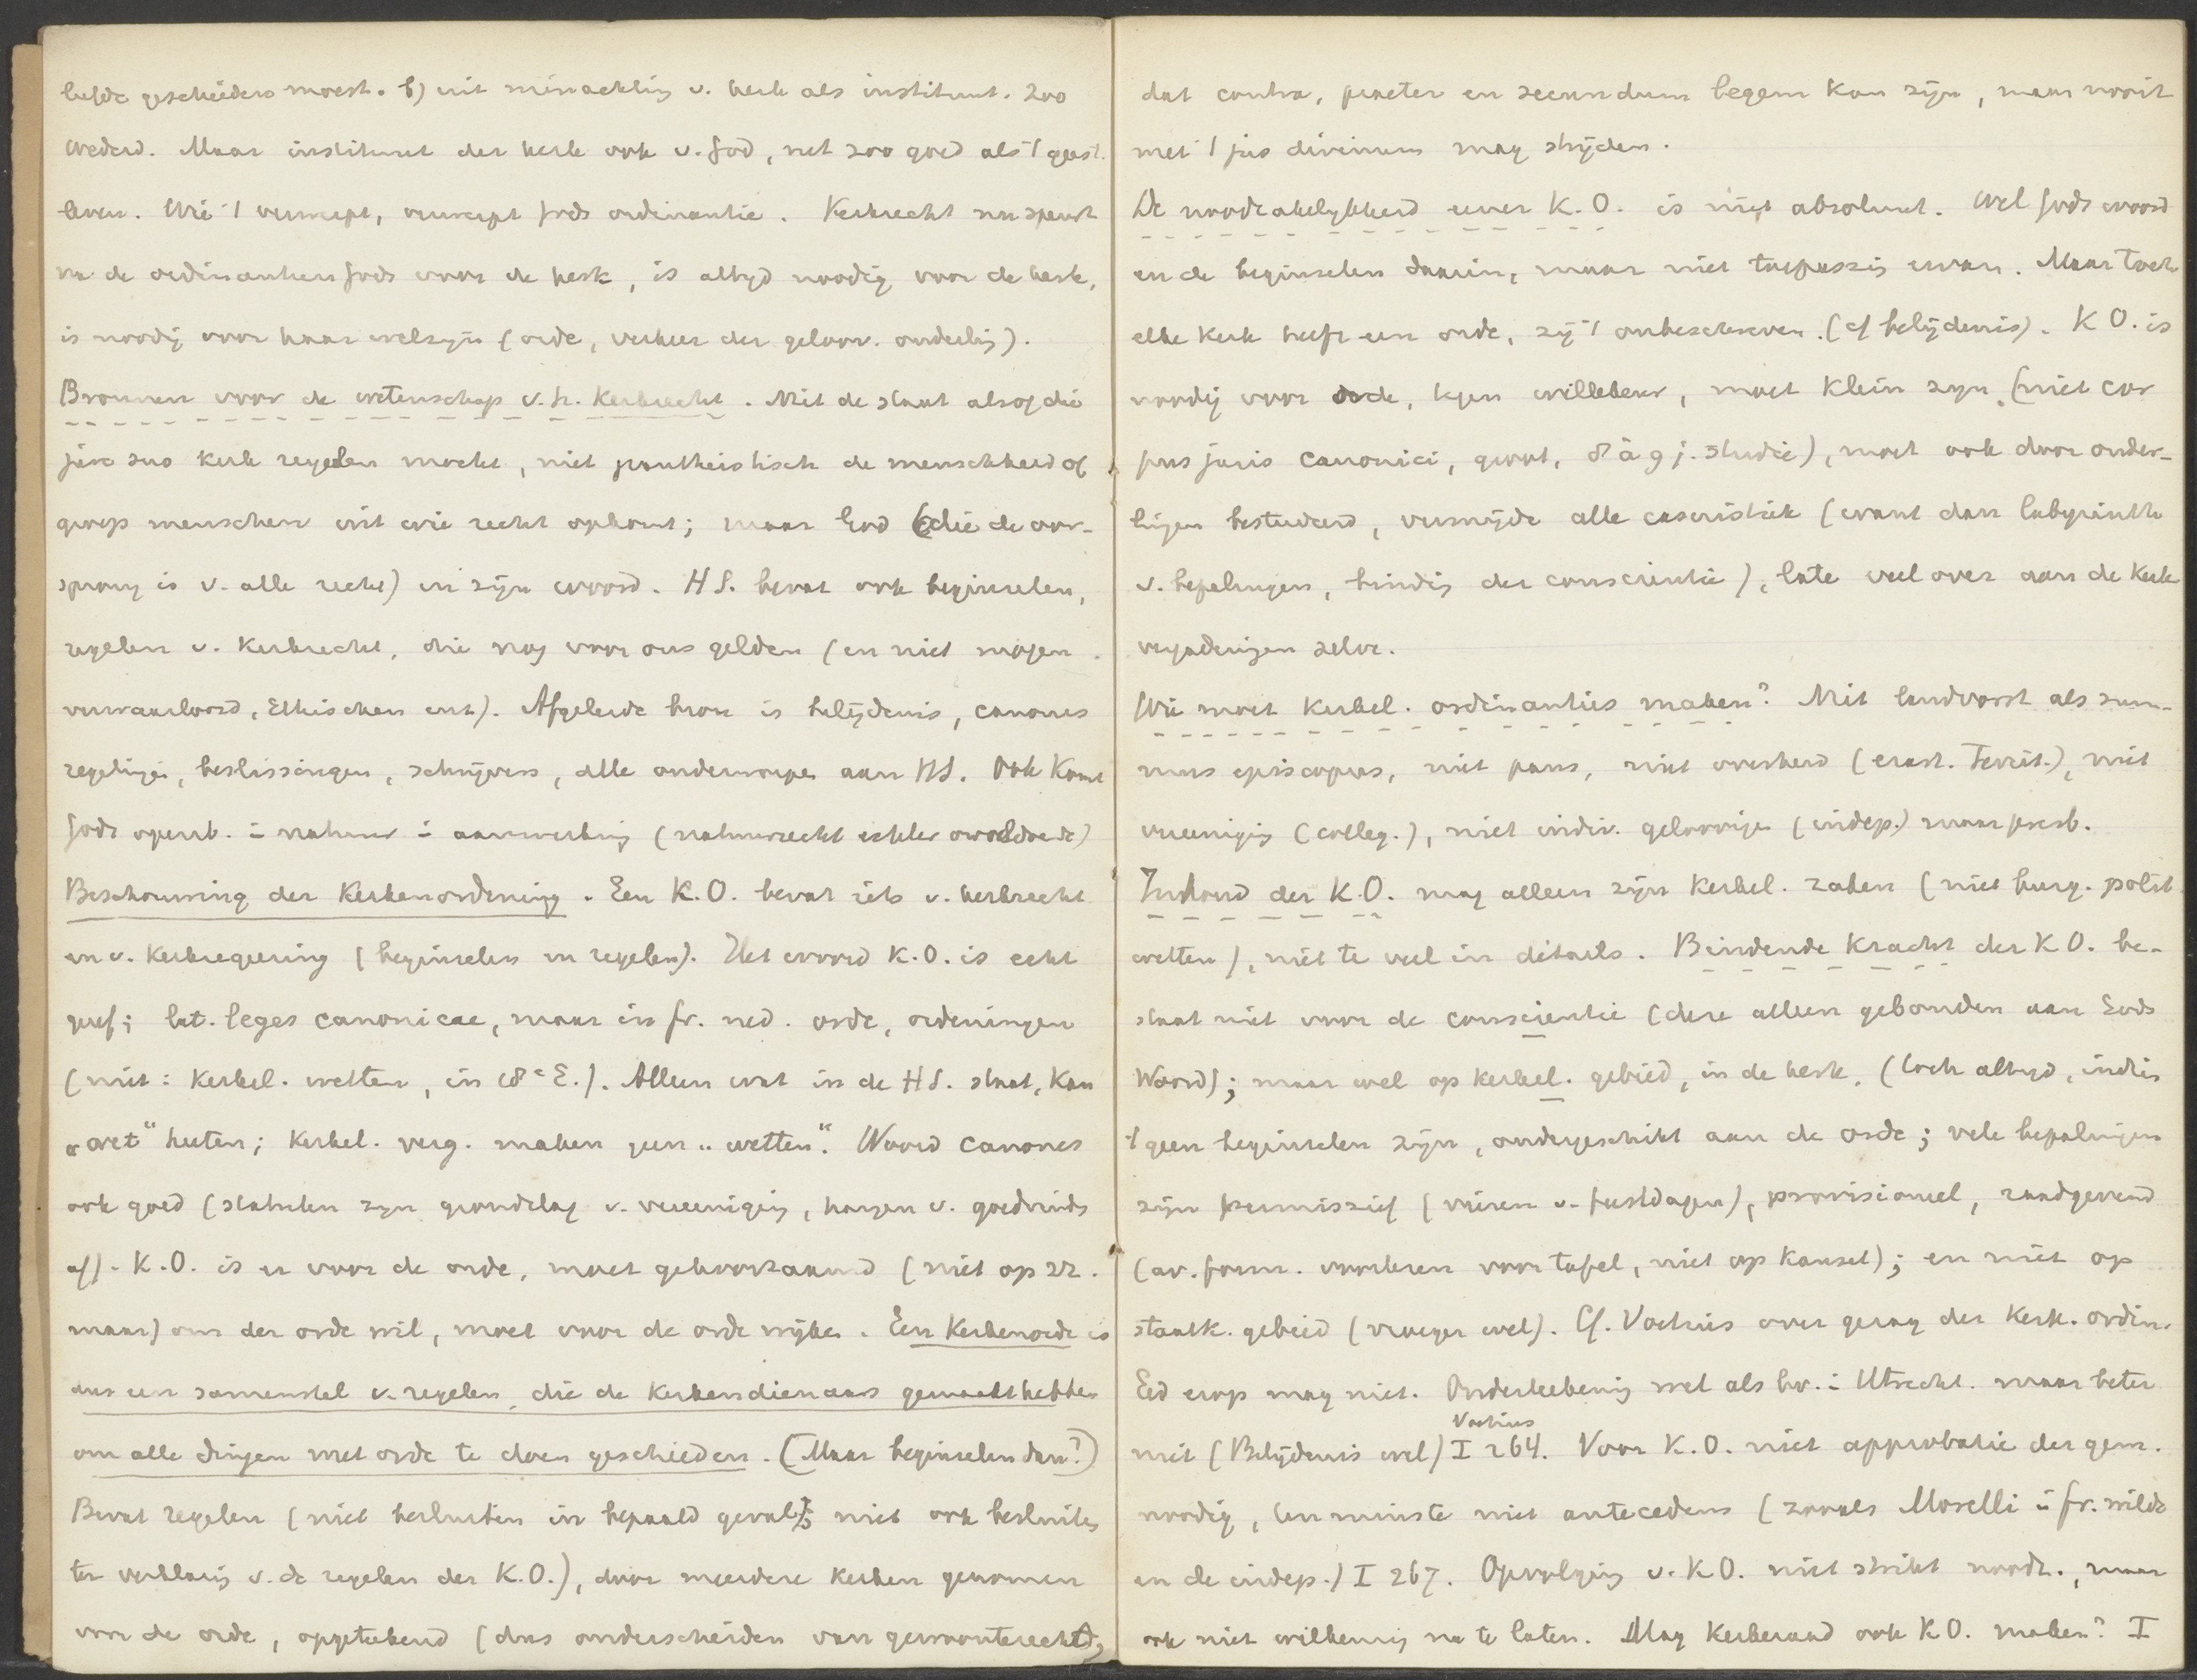 liefde geschieden moest. b) uit minachting v. kerk als instituut. Zoo
Wederd. Maar instituut der kerk ook v. God, net zoo goed als 't geest.
leven. Wie 't verwerpt, verwerpt Gods ordinantie. Kerkrecht nu spoort
na de ordinantien Gods voor de kerk, is altyd noodig voor de kerk,
is noodig voor haar welzyn (orde, verkeer der geloov. onderling).
Bronnen voor de wetenschap v.h. Kerkrecht. Niet de staat alsof die
jure suo kerk regelen mocht, niet pantheistisch de menschheid of
groep menschen uit wie recht opkomt; maar God (die de oor-
sprong is v. alle recht) in zijn woord. H S. bevat ook beginselen,
regelen v. Kerkrecht, die nog voor ons gelden (en niet mogen
verwaarloosd, Ethischen enz). Afgeleide bron is belijdenis, canones
regelingen, beslissingen, schrijvers, alle onderworpen aan HS. Ook komt
Gods openb. i natuur i aanmerking (natuurrecht echter onvoldoende)
Beschouwing der Kerkenordening. Een K.O. bevat iets v. kerkrecht
en v. Kerkregeering (beginselen en regelen). Het woord K.O. is echt
geref; lat. leges canonicae, maar in fr. ned. orde, ordeningen
(niet: Kerkel. wetten, in 18e E.). Alleen wat in de H S. staat, kan
„wet“ heeten; Kerkel. verg. maken geen „wetten“. Woord canones
ook goed (statuten zyn grondslag v. vereeniging, hangen v. goedvinden
af). K.O. is er voor de orde, moet gehoorzaamd (niet op zz.
maar) om der orde wil, moet voor de orde wijken. Een Kerkenorde is
dus een samenstel v. regelen, die de Kerkendienaars gemaakt hebben
om alle dingen met orde te doen geschieden. (Maar beginselen dan?)
Bevat regelen (niet besluiten in bepaald geval; niet ook besluiten
ter verklaring v. de regelen der K.O.), door meerdere kerken genomen
voor de orde, opgeteekend (dus onderscheiden van gewoonterecht,
dat contra, praeter en secundum legem kan zijn, maar nooit
met 't jus divinum mag strijden.
De noodzakelykheid eener K.O. is niet absoluut. Wel Gods woord
en de beginselen daarin, maar niet toepassing ervan. Maar toch
elke Kerk heeft een orde, zij 't onbeschreven. (cf belijdenis). K O. is
noodig voor orde, tegen willekeur, moet klein zyn (niet cor
pus juris canonici, groot, 8 à 9 j. studie), moet ook door onder-
lingen bestudeerd, vermijde alle casuistiek (want dan labyrinth
v. bepalingen, binding der conscientie), late veel over aan de Kerk
vergaderingen zelve.
Wie moet Kerkel. ordinanties maken? Niet landvorst als sum-
mus episcopus, niet paus, niet overheid (erast. Territ.), niet
vereeniging (colleg.), niet indiv. geloovigen (indep.) maar presb.
Inhoud der K.O. mag alleen zijn Kerkel. zaken (niet burg. polit.
wetten), niet te veel in details. Bindende Kracht der K O. be-
staat niet voor de conscientie (deze alleen gebonden aan Gods
Woord); maar wel op kerkel. gebied, in de kerk. (toch altyd, indien
't geen beginselen zijn, ondergeschikt aan de orde; vele bepalingen
zijn permissief (vieren v. feestdagen), provisioneel, raadgevend
(av. form. voorlezen voor tafel, niet op Kansel); en niet op
staatk. gebied (vroeger wel). Cf. Voetius over gezag der Kerk. ordin.
Eed erop mag niet. Onderteekening wel als bv. i Utrecht. maar beter
niet (Belijdenis wel) Voetius I 264. Voor K.O. niet approbatie der gem.
noodig, tenminste niet antecedens (zooals Morelli i fr. wilde
en de indep.) I 267. Opvolging v. K O. niet strikt noodz., maar
ook niet willekeurig na te laten. Mag Kerkeraad ook K O. maken? I